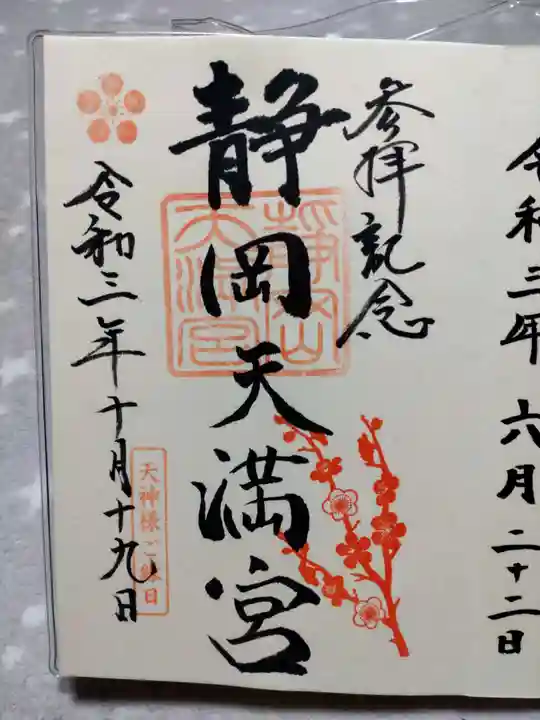 令和三年六月二十二日
参拝記念
静岡天満宮
静岡
天満宮
令和三年十月十九日
天神様ご縁日